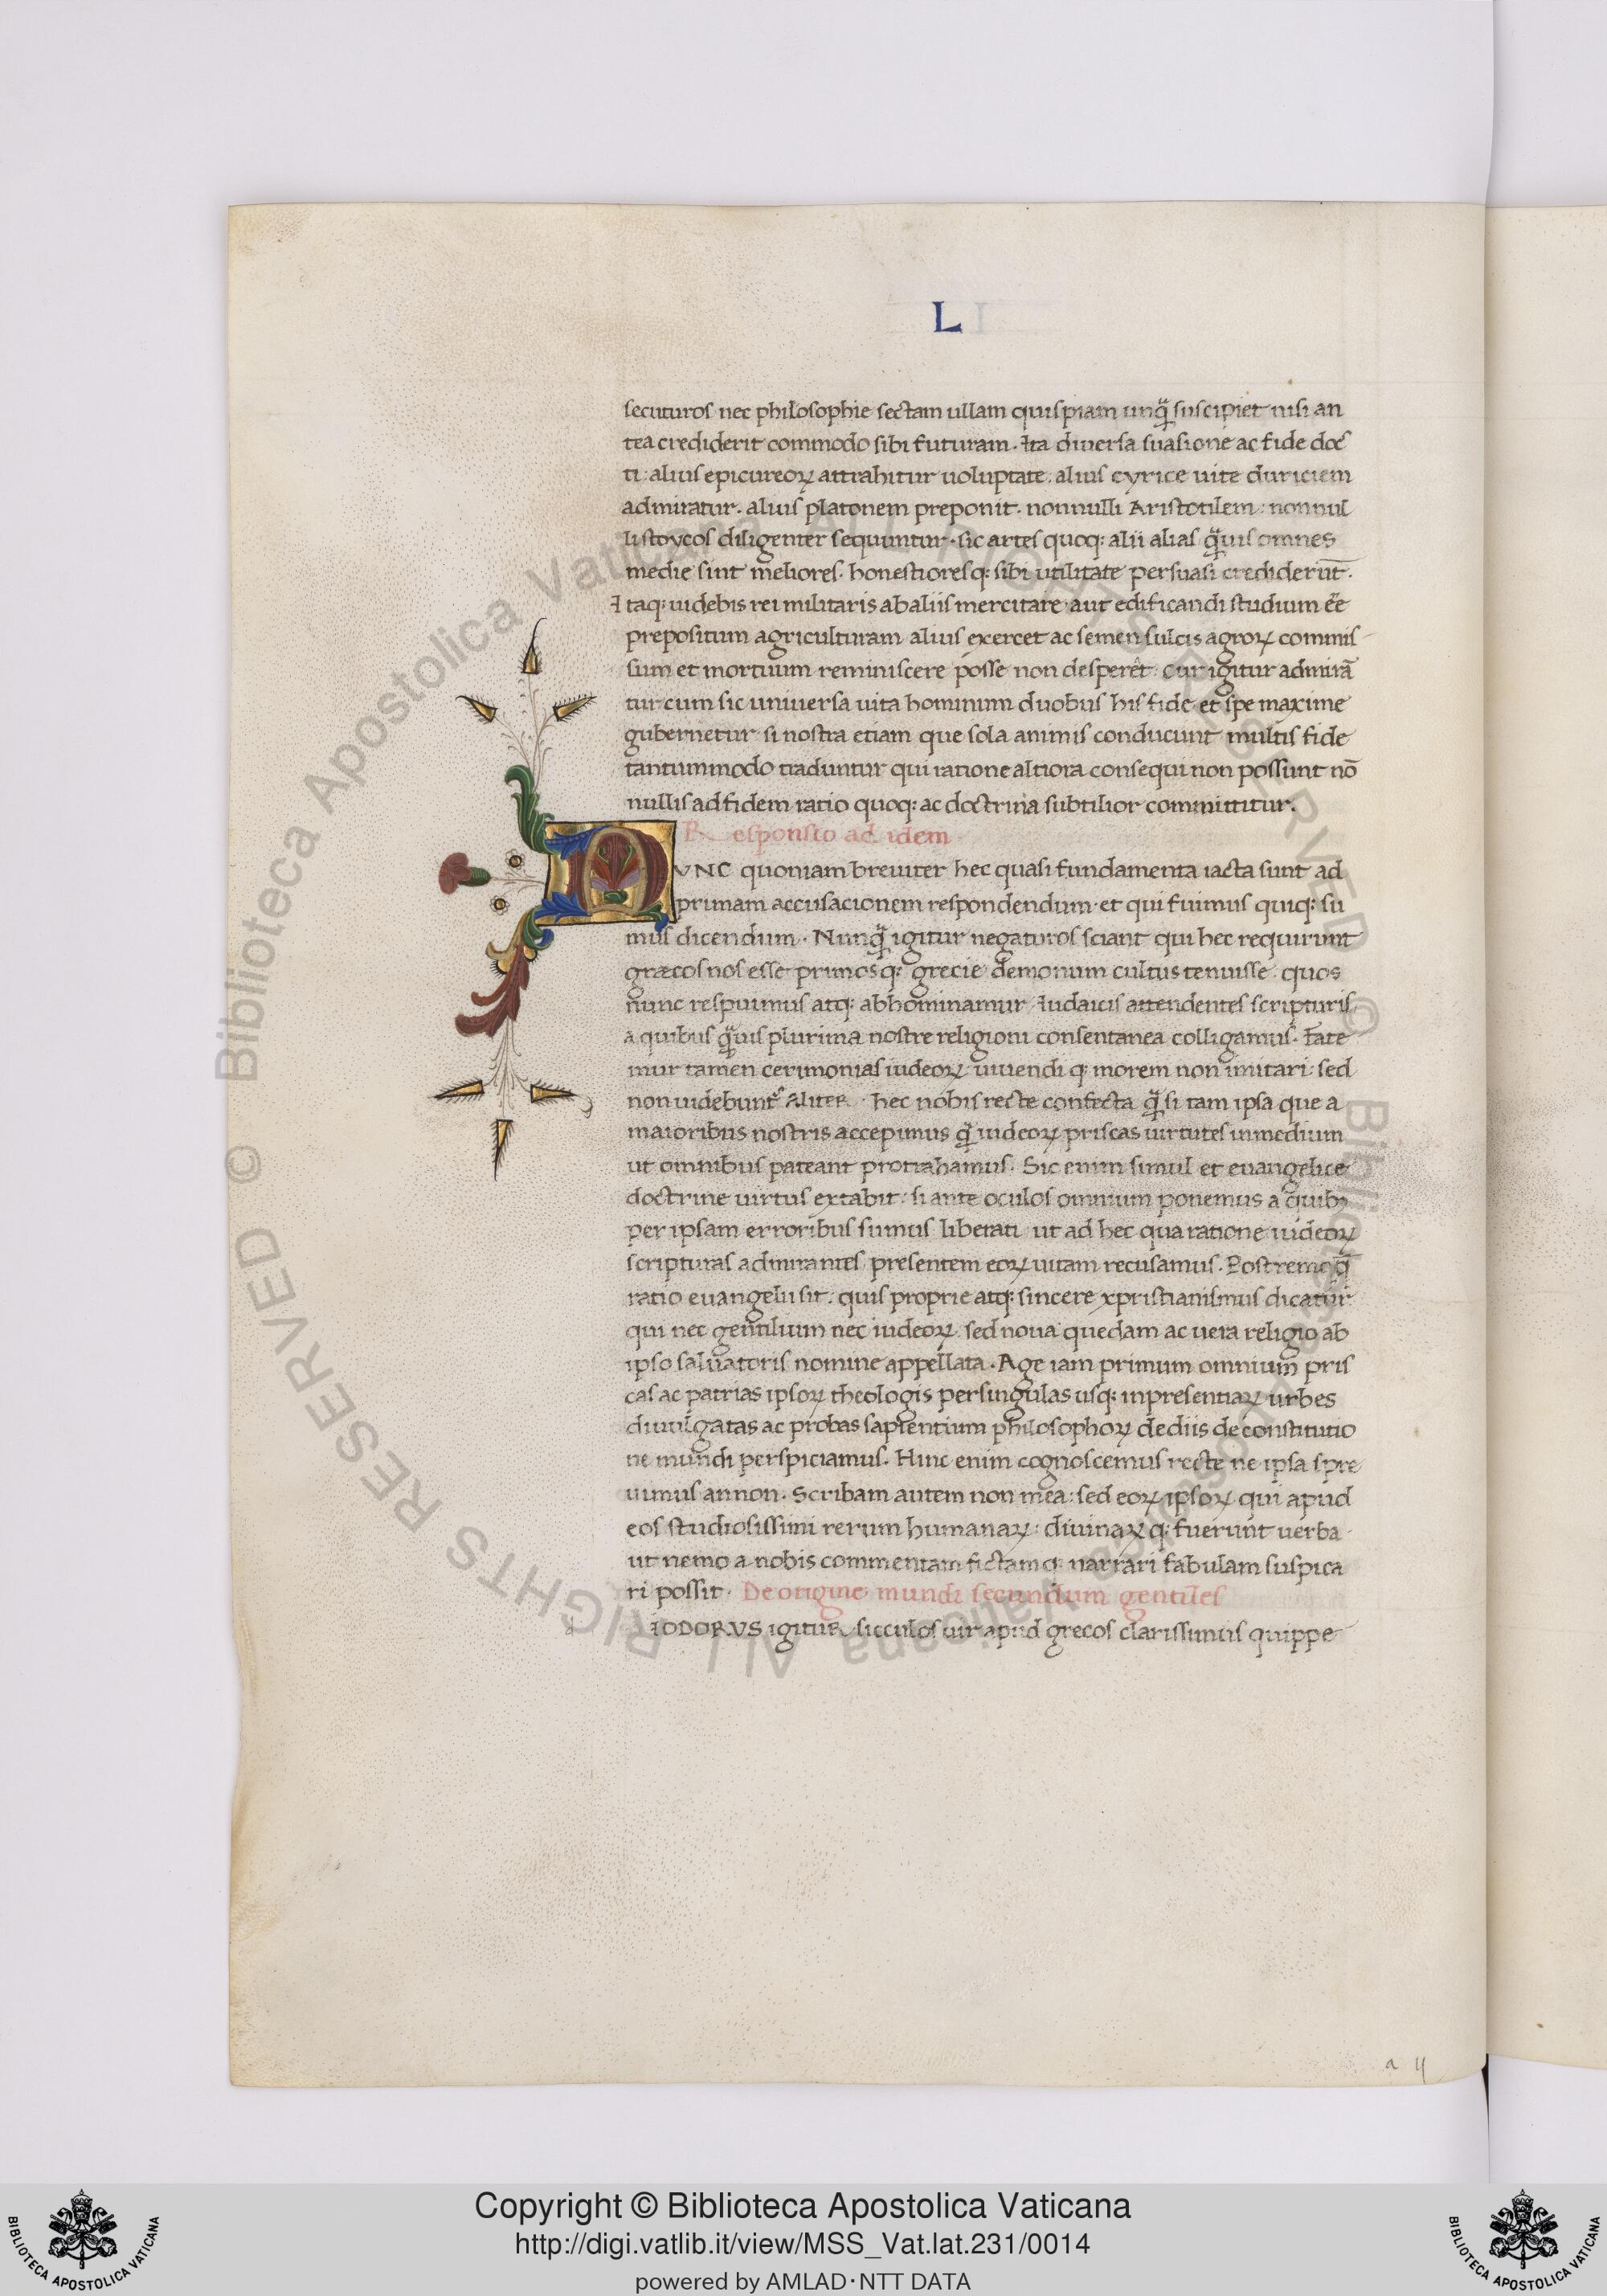 L I
secuturos nec philosophie sectam ullam quispiam unq̃ suscipiet nisi an
tea crediderit commodo sibi futuram. Ita diuersa suasione ac fide doc
ti: alius epicureoꝝ attrahitur uoluptate. alius cyrice uite duriciem
admiratur. alius platonem preponit. nonnulli Aristotilem: nonnul
li stoycos diligenter sequuntur. sic artes quoq: alii alias q̃uis omnes
medie sint meliores. honestioresq: sibi utilitate persuasi crediderūt.
Itaq: uidebis rei militaris ab aliis mercitare aut edificandi studium eē
prepositum agriculturam alius exercet ac semen sulcis agroꝝ commis
sum et mortuum reminiscere posse non desperēt. cur igitur admirā
tur cum sic uniuersa uita hominum duobus his fide et spe maxime
gubernetur si nostra etiam que sola animis conducunt multis fide
tantummodo traduntur qui ratione altiora consequi non possunt nō
nullis ad fidem ratio quoq: ac doctrina subtilior committitur.
Responsio ad idem
NVNC quoniam breuiter hec quasi fundamenta iacta sunt ad
primam accusacionem respondendum. et qui fuimus quiq: su
mus dicendum. Nunq̃ igitur negaturos sciant qui hec requirunt
græcos nos esse primosq: grecie demonum cultus tenuisse. quos
nunc respuimus atq: abhominamur Iudaicis attendentes scripturis
a quibus q̃uis plurima nostre religioni consentanea colligamus. Fate
mur tamen cerimonias iudeoꝝ uiuendi q: morem non imitari: sed
non uidebunt͛ aliter hec nobis recte confecta q̃ si tam ipsa que a
maioribus nostris accepimus q̃ iudeoꝝ priscas uirtutes inmedium
ut omnibus pateant protrahamus. Sic enim simul et euangelice
doctrine uirtus extabit: si ante oculos omnium ponemus a quibꝫ
per ipsam erroribus sumus liberati ut ad hec qua ratione iudeoꝝ
scripturas admirantes presentem eoꝝ uitam recusamus. Postremo q̄
ratio euangelii sit: quis proprie atq: sincere xpristianismus dicatur
qui nec gentilium nec iudeoꝝ. sed noua quedam ac uera religio ab
ipso saluatoris nomine appellata. Age iam primum omnium pris
cas ac patrias ipsoꝝ theologis persingulas usq: inpresentiaꝝ urbes
diuulgatas ac probas sapientium philosophoꝝ de diis de constitutio
ne mundi perspiciamus. Hinc enim cognoscemus recte ne ipsa spre
uimus annon. Scribam autem non mea: sed eoꝝ ipsoꝝ qui apud
eos studiosissimi rerum humanaꝝ: diuinaꝝ q: fuerunt uerba
ut nemo a nobis commentam fictamq: narrari fabulam suspica
ri possit. De origine mundi secundum gentiles
d IODORVS igitur sicculos uir apud grecos clarissimus quippe
a ij
© Biblioteca Apostolica Vaticana ALL RIGHTS RESERVED © Biblioteca Apostolica Vaticana ALL RIGHTS RESERVED
Copyright © Biblioteca Apostolica Vaticana
http://digi.vatlib.it/view/MSS_Vat.lat.231/0014
powered by AMLAD·NTT DATA
BIBLIOTECA APOSTOLICA VATICANA
BIBLIOTECA APOSTOLICA VATICANA